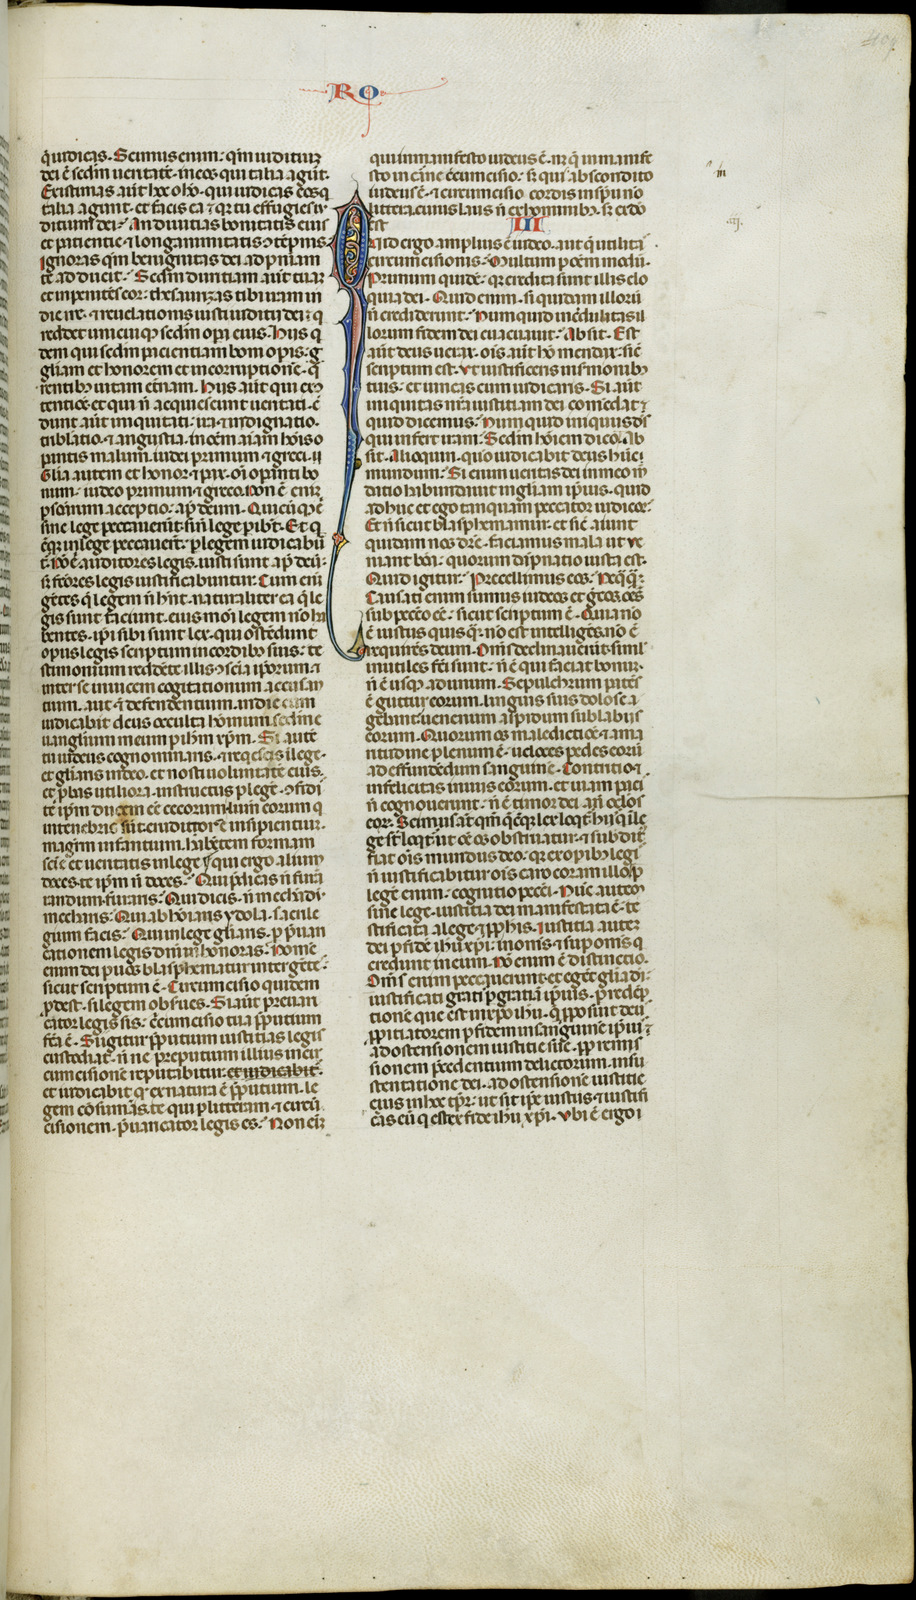 RO
q̄ iudicas. Scimus enim: qm̄ iuditiuȝ
dei ē sedm̄ ueritatē. in eos qui talia agūt.
Existimas aūt hoc o hō. qui iudicas eos q̄
talia agunt. et facis ea ⁊ qr̄ tu effugies iu
ditium dei: An diuitias bonitatis eius
et patientie. ⁊ longanimitatis ↄtēpnis:
Ignoras qm̄ benignitas dei ad pn̄iam
te adducit: Sedm̄ duritiam aūt tuaȝ
et inpenitēs cor: thesaurizas tibi iram in
die ire. ⁊ reuelationis iusti iuditii dei: q̄
reddet unicuiqȝ sedm̄ opa eius. Hiis q
dem qui sedm̄ pacientiam boni opis: g
gliam et honorem et incorruptione. q̄
rentibȝ uitam et̄nam. Hiis aūt qui ex ↄ
tentioē. et qui n̄ acquiescunt ueritati. c̄
dunt aūt iniquitati: ira ⁊ indignatio.
tribulatio. ⁊ angustia. in oēm aīam hōis o
pantis malum. iudei primum ⁊ greci.
Glia autem et honor ⁊ pax. oī opanti bo
num. iudeo primum ⁊ greco. Non ē enī
psonarum acceptio: apd̄ deum. Quicūqȝ ē
sine lege peccauerūt sin̄ lege pibūt. Et q̄
cūqȝ in lege peccauerūt. p legem iudicabū
t̄. Nō ē auditores legis. iusti sunt apd̄ deū:
sȝ fc̄ores legis iustificabuntur. Cum enī
gētes q̄ legem n̄ hn̄t. naturaliter ea q̄ le
gis sunt faciunt. eius mōi legem nō ha
bentes. ip̄i sibi sunt lex. qui ostēdunt
opus legis scriptum in cordibȝ suis: te
stimonium reddēte illis ↄscia ip̄orum. ⁊
inter se inuicem cogitationum accusan
tium. aut ⁊ defendentium. in die cum
iudicabit deus occulta hominum sedm̄ e
uangelium meum p ih̄m xp̄m. Si autē
tu iudeus cognominaris. ⁊ reqescis ī lege.
et gl̄iaris in deo. et nosti uoluntatē eius.
et pbas utiliora. instructus p legē. ↄfidi
te ip̄m ducem eē cecorum. lum̄ eorum q
in tenebris sūt. eruditorē insipientiuȝ.
magr̄m infantium. habētem formam
scie ēt ueritatis in lege. qui ergo alium
doces. te ip̄m n̄ doces: Qui p̄dicas n̄ fura
randum. furaris: Qui dicis. n̄ mechādi.
mecharis: Qui abhoīaris ydola. sacrile
gium facis: Qui in lege gl̄iaris. p p̄uari
cationem legis dm̄ inhonoras: Nomē
enim dei p uos blasphematur inter gētes:
sicut scriptum ē. Circumcisio quidem
pdest. si legem obserues. Si aūt p̄euari
cator legis sis: c̄cumcisio tua p̄putium
fc̄a ē. Si igitur p̄putium iustitias legis
custodiat. n̄ ne preputium illius in cir
cumcisione reputabitur. et iudicabit
et iudicabit qȝ ex natura ē p̄putium. le
gem cōsum̄as. te qui p litteram ⁊ circū
cisionem. p̄uaricator legis es: Non eī
qui in manifesto iudeus ē. nȝ q̄ in manife
sto in carne c̄cumcisio: sȝ qui abscondito
iudeus ē. ⁊ circumcisio cordis in spū nō
littera. cuius laus n̄ ex hominibȝ. sȝ ex dō
est III
Quid ergo amplius ē iudeo. aut q̄ utilitas
circumcisionis. Multum p oēm modū.
Primum quidē: qȝ credita sunt illis elo
quia dei. Quid enim. si quidam illorū
n̄ crediderunt: Num quid incredulitas il
lorum fidem dei euacuauit: Absit. Est
aūt deus uerax. oīs aūt hō mendax: sic̄
scriptum est. ut iustificeris in sermonibȝ
tuis: et uincas cum iudicaris. Si aūt
iniquitas nr̄a iustitiam dei comēdat:
quid dicemus: Num quid iniquus ds̄
qui infert iram: Sedm̄ hōiem dico. Ab
sit. Alioquin. quō iudicabit deus hūc
mundum: Si enim ueritas dei in meo m̄
datio habundauit in gl̄iam ip̄ius. quid
adhuc et ego tanquam peccator iudicor:
Et n̄ sicut blasphemamur. et sic̄ aiunt
quidam nos dic̄e. faciamus mala ut ve
niant bōa: quorum dāpnatio iusta est.
Quid igitur: Precellimus eos: Neqȝqȝ.
Causati enim sumus iudeos et grēcos oēs
sub peccō eē: sicut scriptum ē. Quia nō
ē iustus quis qȝ. nō est intelligēs. nō ē
requirēs deum. Om̄s declinauerūt. simul
inutiles fc̄i sunt: n̄ ē qui faciat bonum.
n̄ ē usqȝ ad unum. Sepulchrum patēs
ē guttur eorum. linguis suis dolose a
gebant: uenenum aspidum sub labiis
eorum. Quorum os maledictioē ⁊ ama
ritudine plenum ē: ueloces pedes eorū
ad effundēdum sanguinē. Contritio ⁊
infelicitas in uiis eorum. et uiam paci
n̄ cognouerunt: n̄ ē timor dei añ oc̄los
eoȝ. Scimus aūt qm̄ q̄cūqȝ lex loqt̄ hiis q̄ ī le
ge sūt loqt̄. ut oē os obstruatur. ⁊ subdit̄
fiat oīs mundus deo: qȝ ex opibȝ legis
n̄ iustificabitur oīs caro coram illo. p
legē enim: cognitio pecci. Nūc autem
sine lege. iustitia dei manifestata ē. te
stificata a lege ⁊ pphis. Iustitia autē
dei p fidē ih̄u xp̄i. in oms ⁊ sup oms q̄
credunt in eum. Nō enim ē distinctio.
Om̄s enim peccauerunt. et egēt gl̄ia di:
iustificati gratis p gratiā ip̄ius. p redēp
tionē que est in xp̄o ih̄u. q̄ pposuit deu
ppitiatorem p fidem in sanguine ip̄ius
ad ostensionem iustitie sue. pp remis
sionem p̄cedentium delictorum. in su
stentatione dei. ad ostensionē iustitie
eius in hoc tpr̄: ut sit ip̄e iustus ⁊ iustifi
cās eū q est ex fide ih̄u xp̄i. Vbi ē ergo